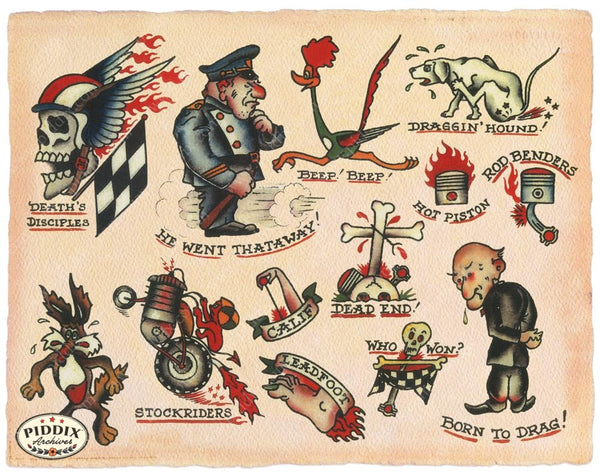 DEATH'S
DISCIPLES
HE WENT THATAWAY!
BEEP! BEEP!
DRAGGIN' HOUND!
HOT PISTON
ROD BENDERS
STOCKRIDERS
CALIF
LEADFOOT
DEAD END!
WHO WON?
BORN TO DRAG!
PIDDIX
Archives